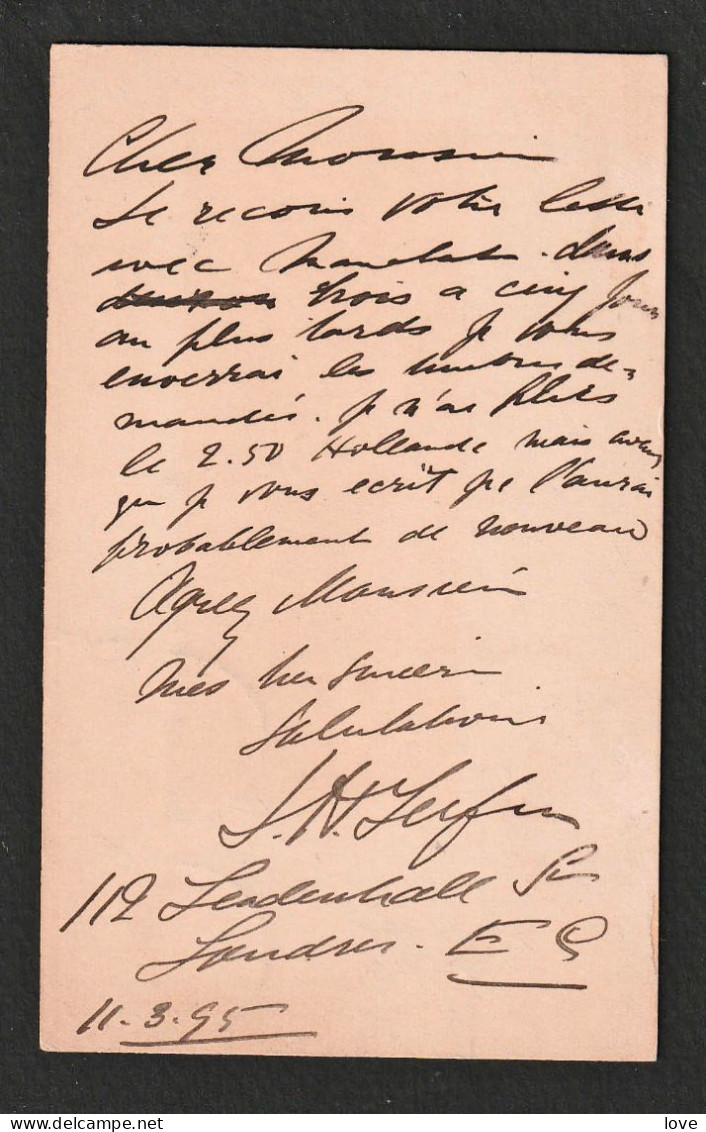 Cher Monsieur
Je recois votre lettre
avec mandat. dans
trois a cinq jours
au plus tards je vous
enverrai les timbres de=
mandés. je n'ai plus
le 2.50 Hollande mais avant
que je vous ecrit je l'aurai
probablement de nouveau
Agreez Monsieur
mes sincères
salutations
112 Leadenhall St
Londres. E C
11.3.95
delcampe.net
love